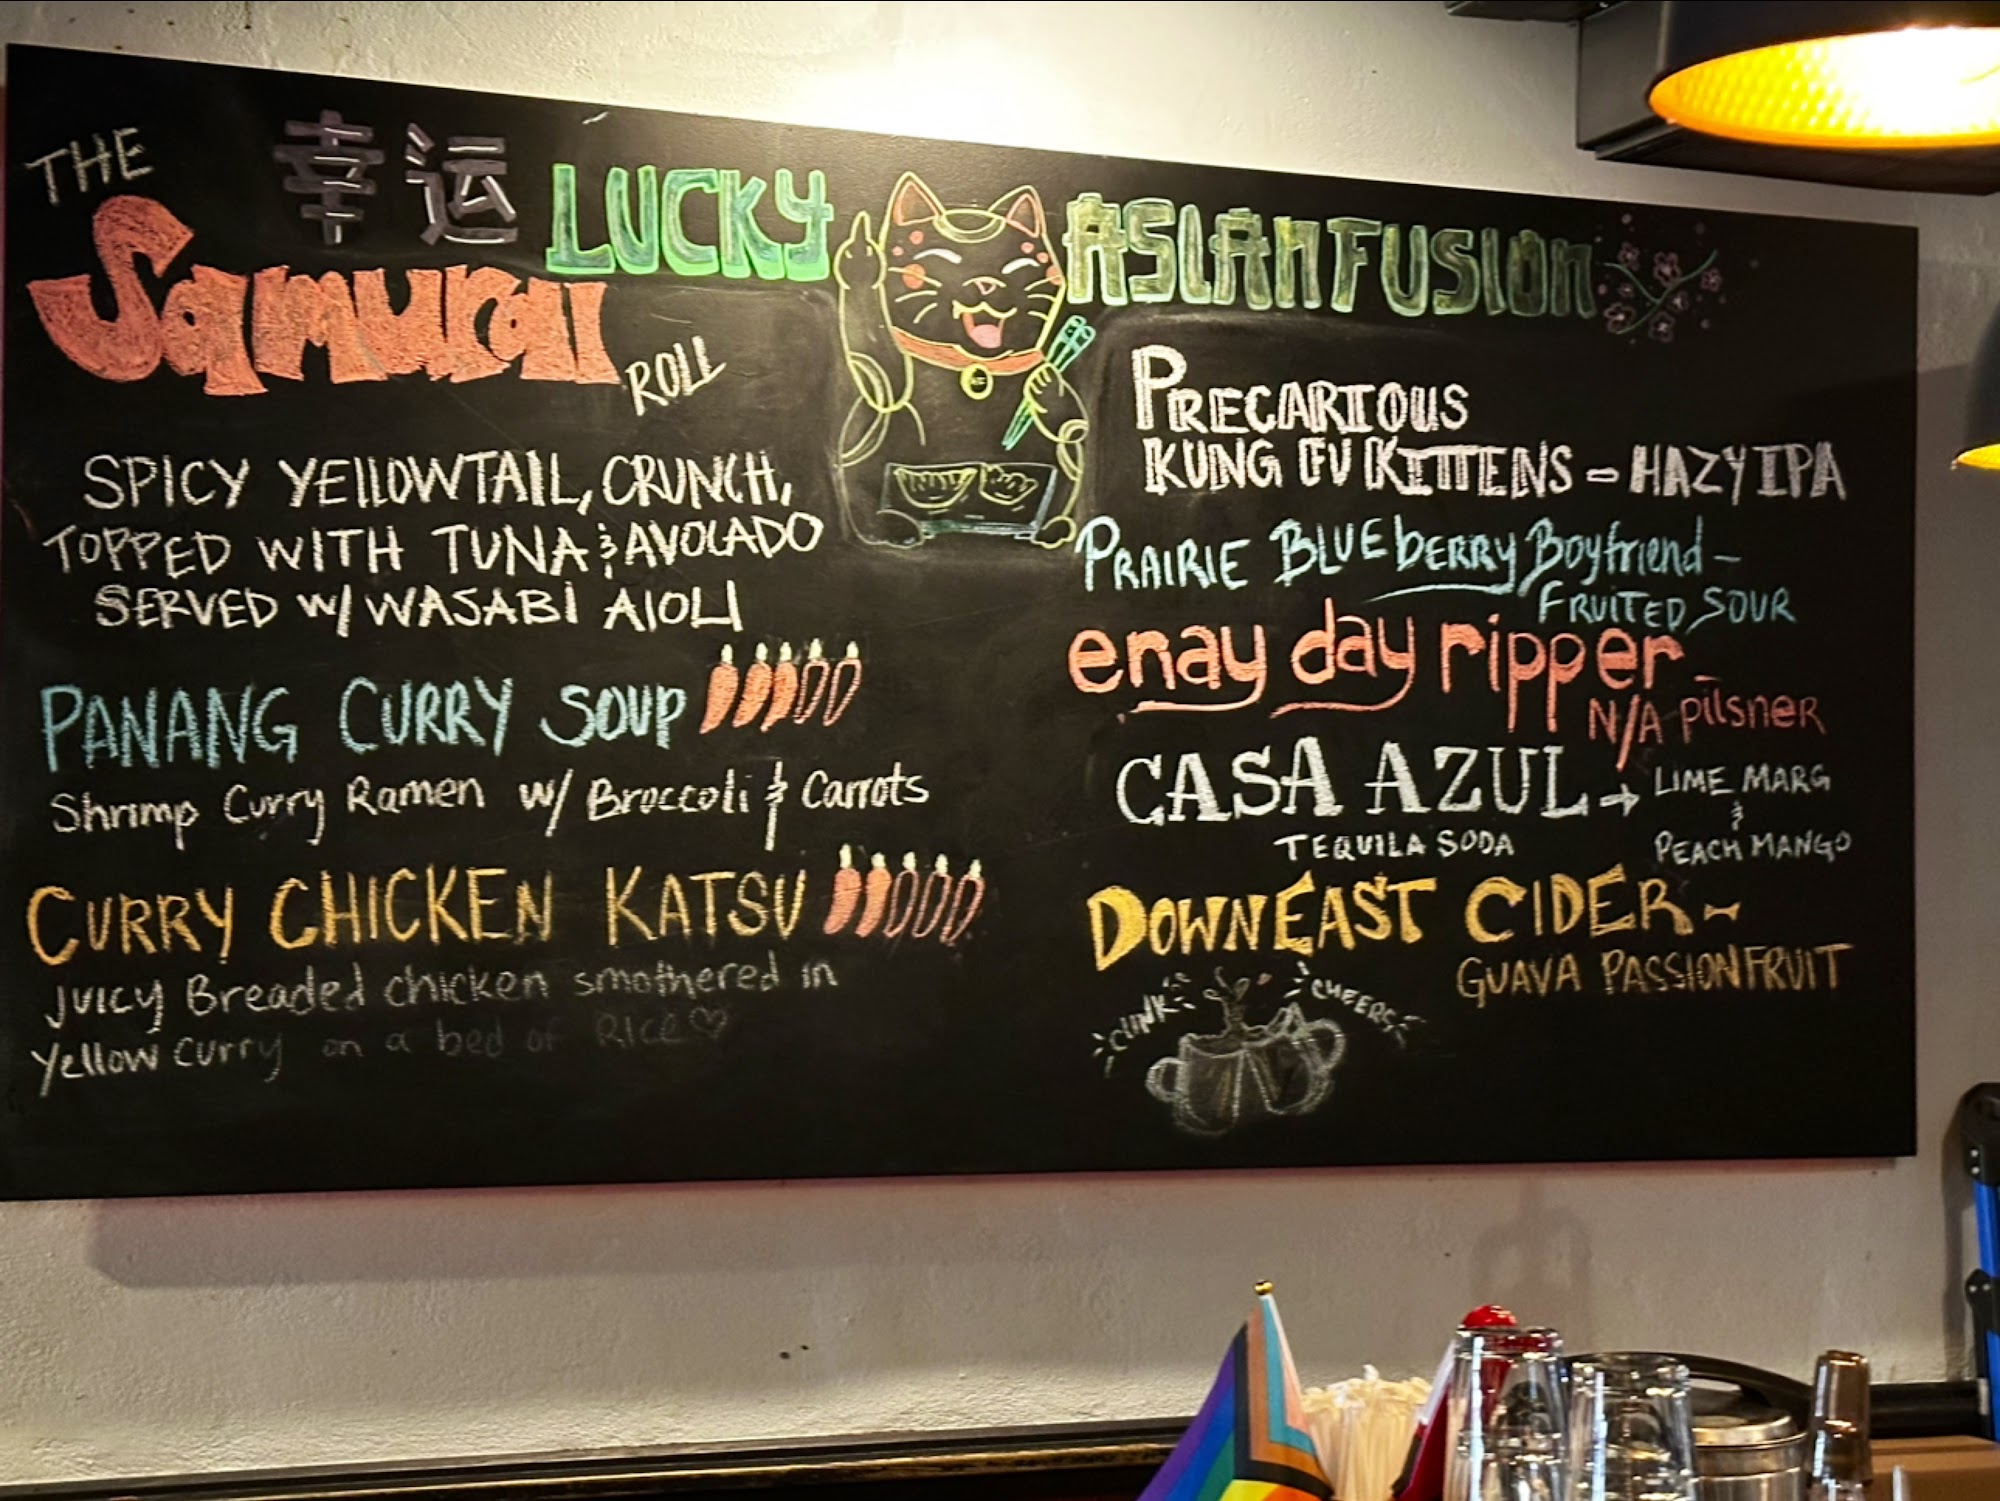 幸运 LUCKY ASIAN FUSION
THE
Samurai
ROLL
SPICY YELLOWTAIL, CRUNCH,
TOPPED WITH TUNA & AVOCADO
SERVED W/ WASABI AIOLI
PANANG CURRY SOUP
Shrimp Curry Ramen w/ Broccoli & Carrots
CURRY CHICKEN KATSU
Juicy Breaded chicken smothered in
Yellow curry on a bed of Rice
PRECARIOUS
KUNG FU KITTENS - HAZY IPA
PRAIRIE BLUEbERRY Boyfriend -
FRUITED SOUR
enay day ripper -
N/A pilsneR
CASA AZUL → LIME MARG
&
TEQUILA SODA PEACH MANGO
DOWNEAST CIDER -
GUAVA PASSIONFRUIT
CLINK CHEERS